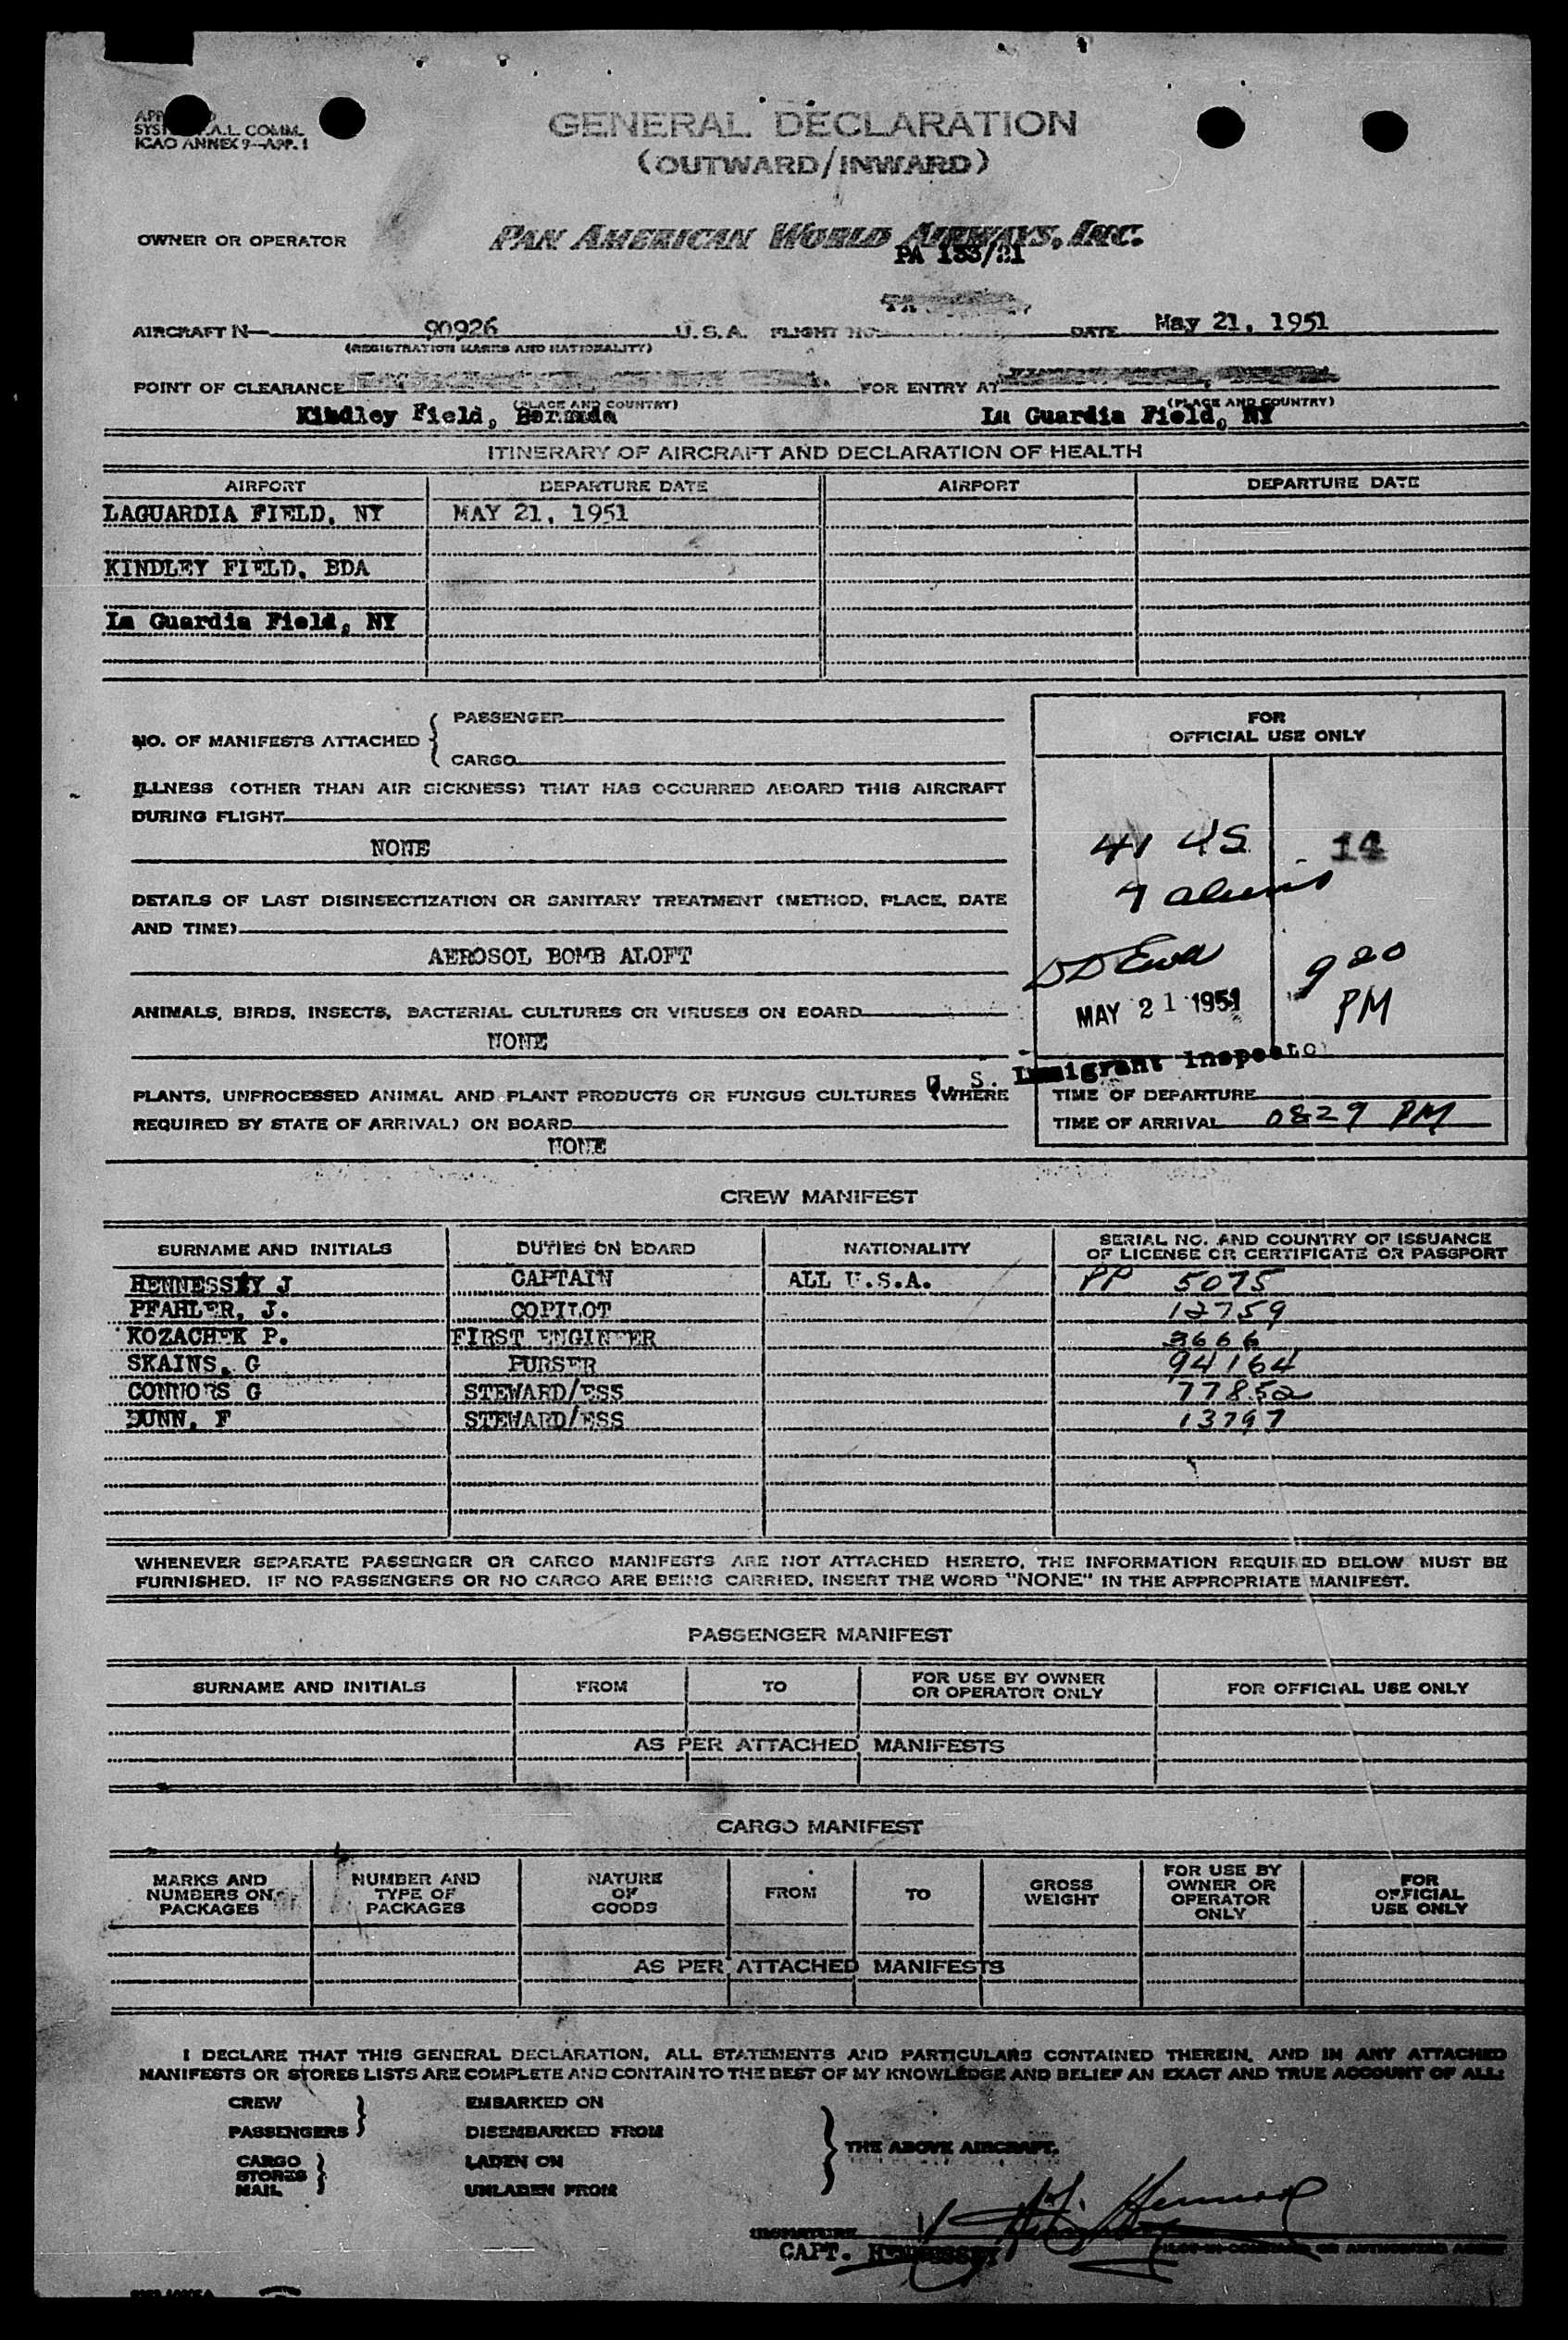 SYST A.L. COMM.
ICAO ANNEX 9—APP. 1
GENERAL DECLARATION
(OUTWARD/INWARD)
OWNER OR OPERATOR PAN AMERICAN WORLD AIRWAYS, INC.
PA 133/21
PA
AIRCRAFT N— 90926 U.S.A. FLIGHT NO. DATE May 21, 1951
(REGISTRATION MARKS AND NATIONALITY)
POINT OF CLEARANCE FOR ENTRY AT
(PLACE AND COUNTRY) (PLACE AND COUNTRY)
Kindley Field, Bermuda La Guardia Field, NY
ITINERARY OF AIRCRAFT AND DECLARATION OF HEALTH
AIRPORT DEPARTURE DATE AIRPORT DEPARTURE DATE
LAGUARDIA FIELD, NY MAY 21, 1951
KINDLEY FIELD, BDA
La Guardia Field, NY
NO. OF MANIFESTS ATTACHED { PASSENGER
CARGO
ILLNESS (OTHER THAN AIR SICKNESS) THAT HAS OCCURRED ABOARD THIS AIRCRAFT
DURING FLIGHT
NONE
DETAILS OF LAST DISINSECTIZATION OR SANITARY TREATMENT (METHOD, PLACE, DATE
AND TIME)
AEROSOL BOMB ALOFT
ANIMALS, BIRDS, INSECTS, BACTERIAL CULTURES OR VIRUSES ON BOARD
NONE
PLANTS, UNPROCESSED ANIMAL AND PLANT PRODUCTS OR FUNGUS CULTURES (WHERE
REQUIRED BY STATE OF ARRIVAL) ON BOARD
NONE
FOR
OFFICIAL USE ONLY
41 US 14
7 aliens
9 20
PM
MAY 21 1951
U. S. Immigrant Inspector
TIME OF DEPARTURE
TIME OF ARRIVAL 0829 PM
CREW MANIFEST
SURNAME AND INITIALS DUTIES ON BOARD NATIONALITY SERIAL NO. AND COUNTRY OF ISSUANCE
OF LICENSE OR CERTIFICATE OR PASSPORT
HENNESSEY J CAPTAIN ALL U.S.A. PP 5075
PFAHLER, J. COPILOT 12759
KOZACHEK P. FIRST ENGINEER 3666
SKAINS, G PURSER 94164
CONNORS G STEWARD/ESS 77852
DUNN, F STEWARD/ESS 13797
WHENEVER SEPARATE PASSENGER OR CARGO MANIFESTS ARE NOT ATTACHED HERETO, THE INFORMATION REQUIRED BELOW MUST BE
FURNISHED. IF NO PASSENGERS OR NO CARGO ARE BEING CARRIED, INSERT THE WORD "NONE" IN THE APPROPRIATE MANIFEST.
PASSENGER MANIFEST
SURNAME AND INITIALS FROM TO FOR USE BY OWNER
OR OPERATOR ONLY FOR OFFICIAL USE ONLY
AS PER ATTACHED MANIFESTS
CARGO MANIFEST
MARKS AND
NUMBERS ON
PACKAGES
NUMBER AND
TYPE OF
PACKAGES
NATURE
OF
GOODS
FROM
TO
GROSS
WEIGHT
FOR USE BY
OWNER OR
OPERATOR
ONLY
FOR
OFFICIAL
USE ONLY
AS PER ATTACHED MANIFESTS
I DECLARE THAT THIS GENERAL DECLARATION, ALL STATEMENTS AND PARTICULARS CONTAINED THEREIN, AND IN ANY ATTACHED
MANIFESTS OR STORES LISTS ARE COMPLETE AND CONTAIN TO THE BEST OF MY KNOWLEDGE AND BELIEF AN EXACT AND TRUE ACCOUNT OF ALL:
CREW EMBARKED ON
PASSENGERS } DISEMBARKED FROM
} THE ABOVE AIRCRAFT.
CARGO LADEN ON
STORES }
MAIL UNLADEN FROM
SIGNATURE
CAPT. HENNESSEY PILOT-IN-COMMAND OR AUTHORIZED AGENT